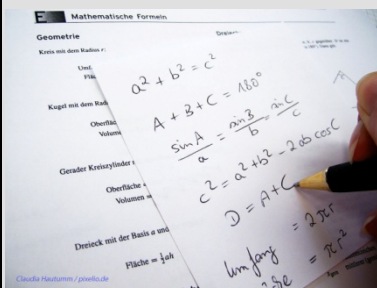 E Mathematische Formeln
Geometrie
Kreis mit dem Radius r:
Dreieck
Umf
Flä
Kugel mit dem Radi
Oberfläc
Volume
Gerader Kreiszylinder
Oberfläche
Volumen =
Dreieck mit der Basis a und
Fläche = ½ah
a² + b² = c²
A + B + C = 180°
sin A / a = sin B / b = sin C / c
c² = a² + b² - 2ab cos C
D = A + C
Umfang = 2πr
= πr²
Claudia Hautumm / pixelio.de